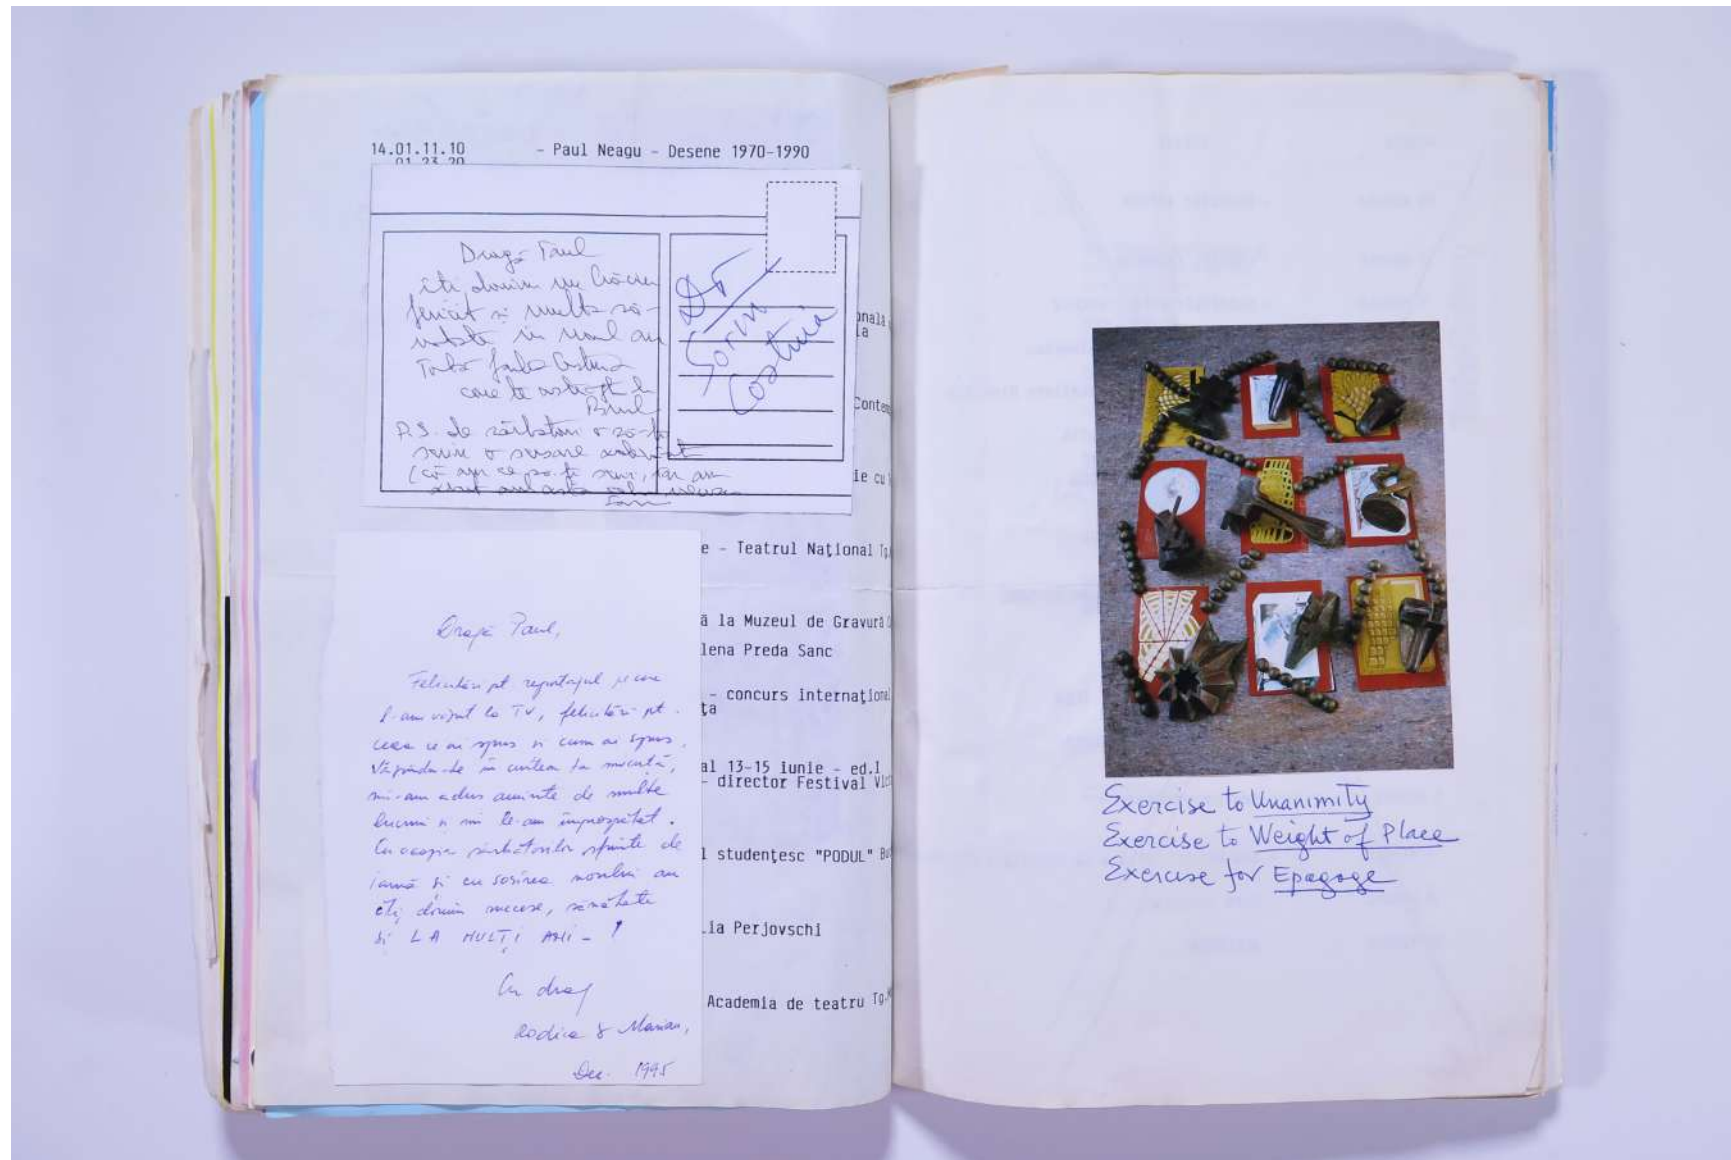 14.01.11.10 - Paul Neagu - Desene 1970-1990
01.23.20
Dragă Paul
îți dorim un Crăciun
fericit și multă să-
nătate în noul an
Toată
care te
P.S. de sărbători o să-ți
scriu o
(că am ce să-ți
Dr
Sorin
Costina
onală
la
Contem
ie cu
e - Teatrul Naţional Tg.
ă la Muzeul de Gravură
lena Preda Sanc
- concurs internaţional
ţa
al 13-15 iunie - ed.I
- director Festival Vic
l studenţesc "PODUL" Bu
lia Perjovschi
Academia de teatru Tg.M
Dragă Paul,
Felicitări pt. reportajul pe care
l-am văzut la TV, felicitări pt.
ceea ce ai spus și cum ai spus.
Văzându-te în curtea ta
mi-am adus aminte de multe
lucruri și mi le-am împrospătat.
Cu ocazia sărbătorilor sfinte de
iarnă și cu sosirea noului an
îți dorim succese, sănătate
și LA MULȚI ANI - !
Cu drag
Rodica & Marian,
Dec. 1995
Exercise to Unanimity
Exercise to Weight of Place
Exercise for Epagoge